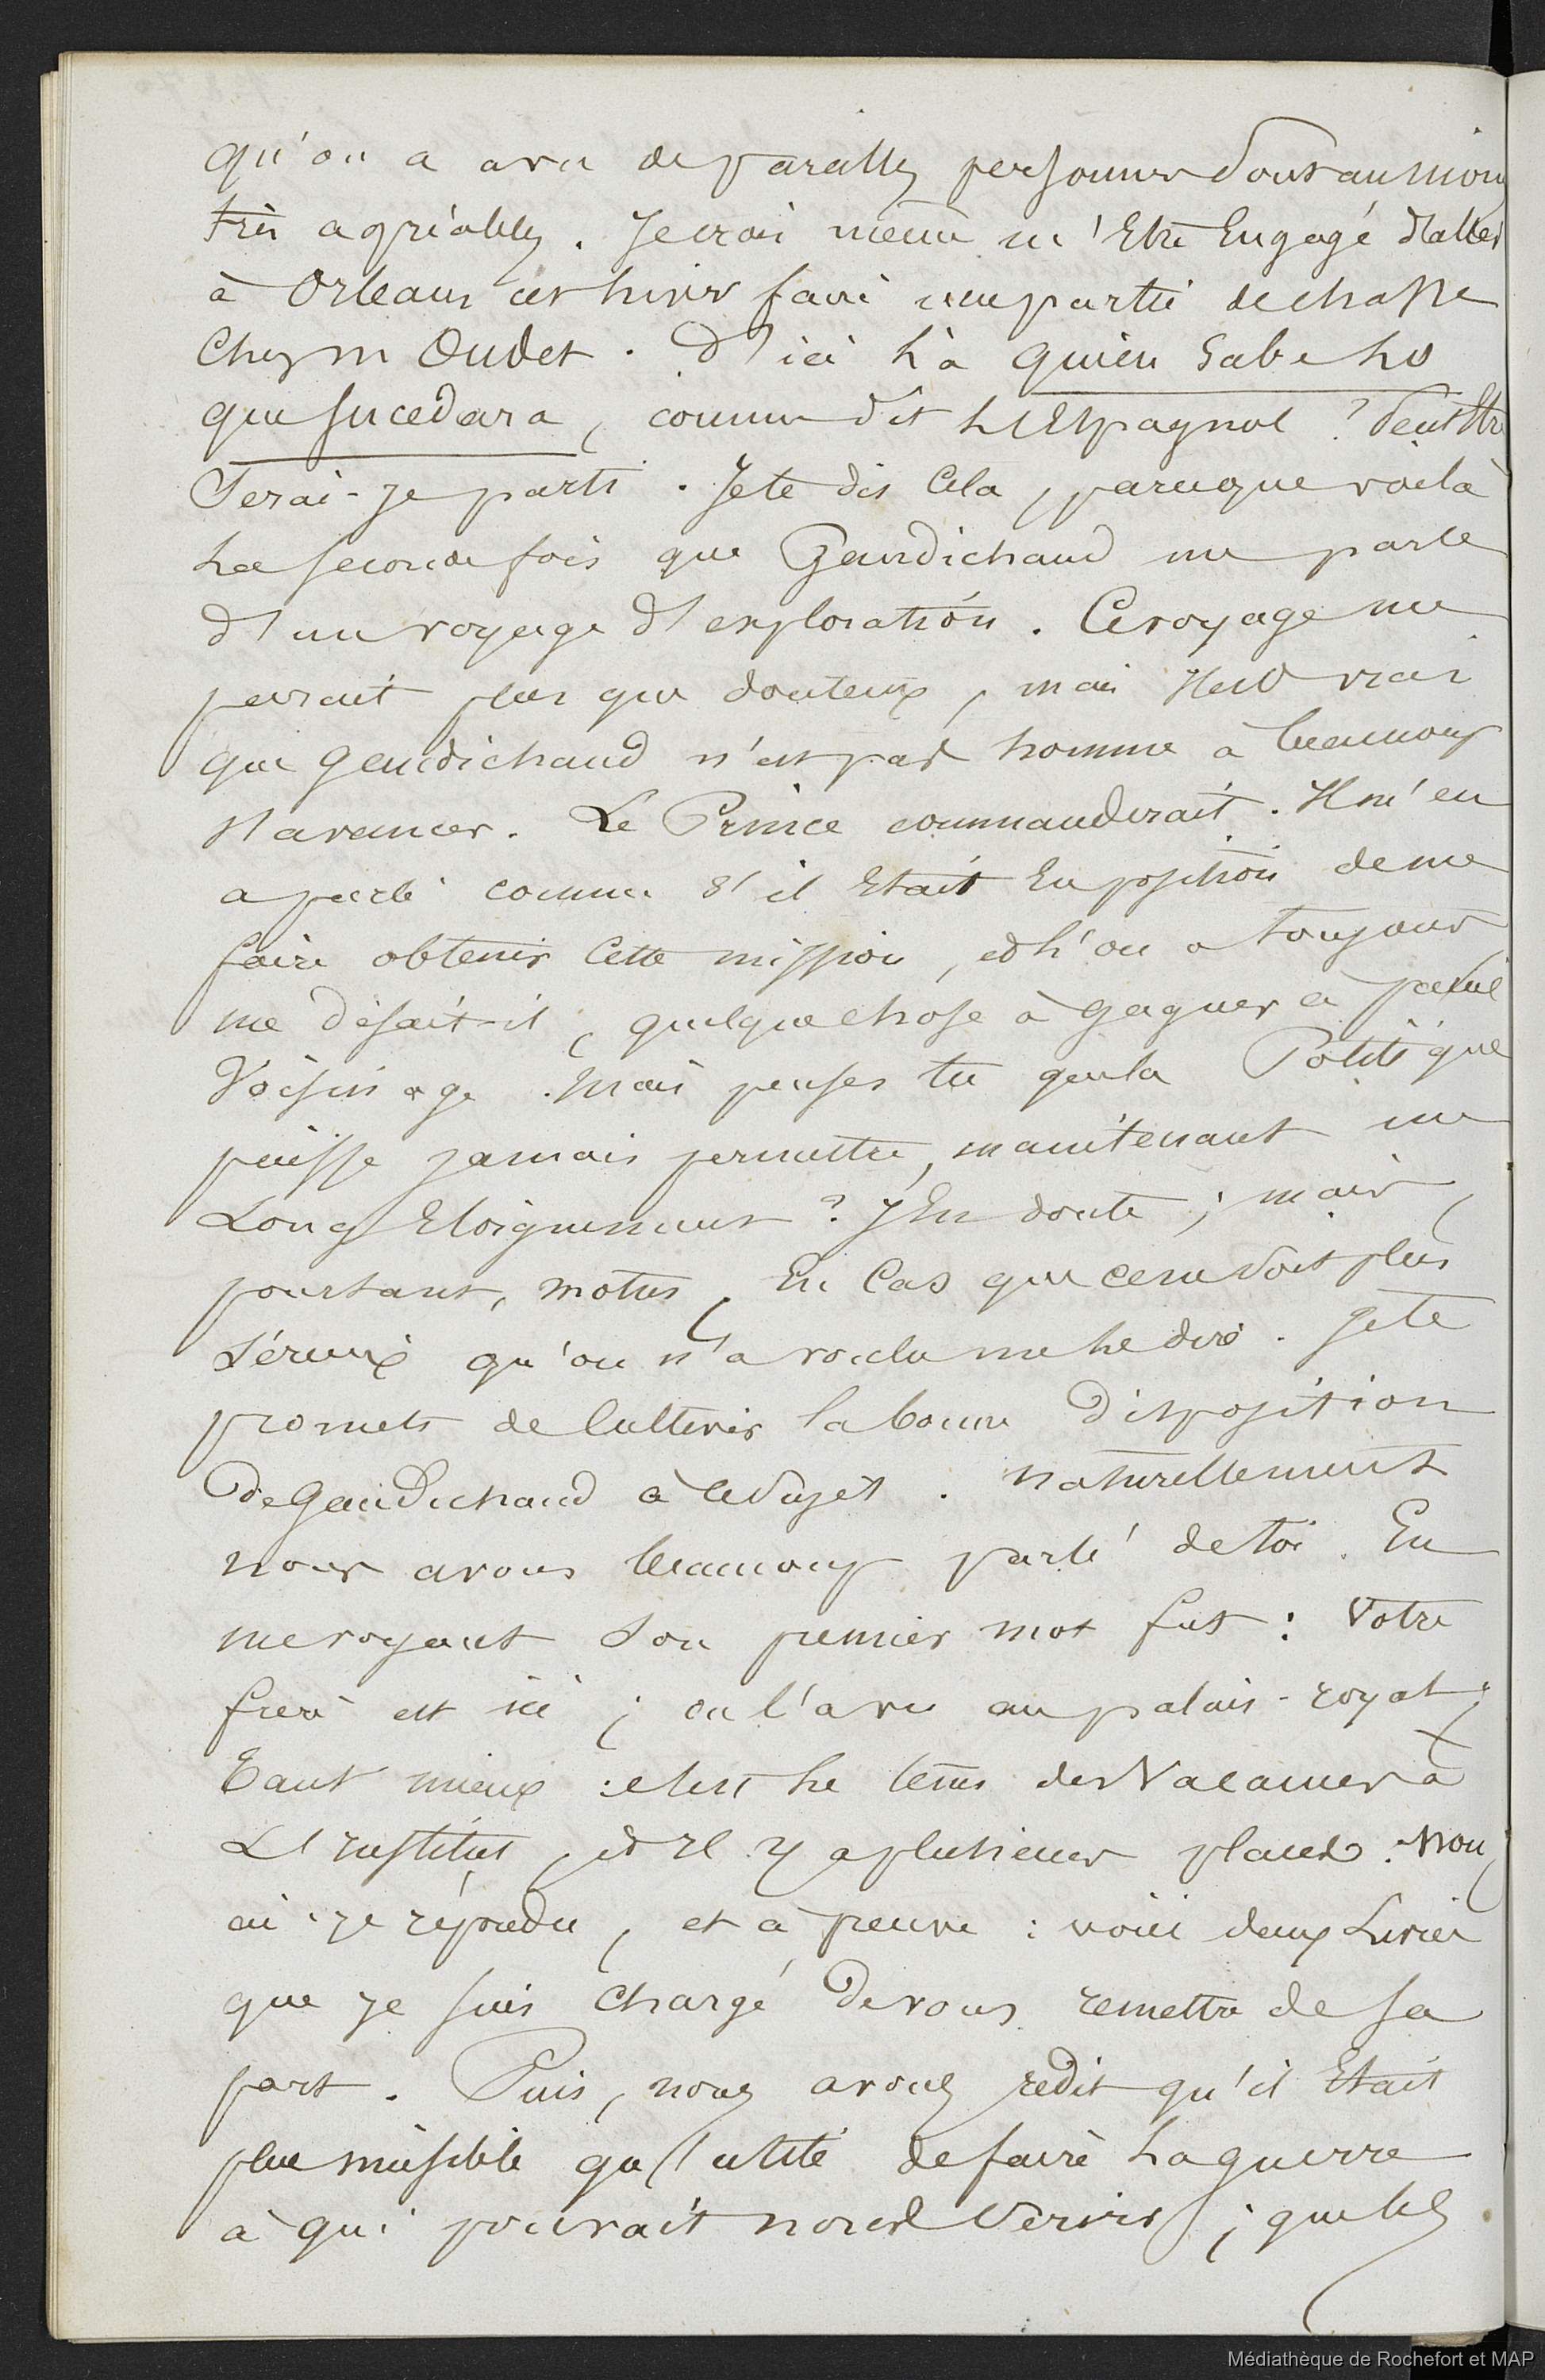 qu'on a avec de pareilles personnes sont au moins
très agréables. Je crois même m'Etre Engagé d'aller
à Orleans cet hiver faire une partie de chasse
Chez m Oudet. D'ici là quien Sabe lo
que sucedara, comme dit l'Espagnol ? Peut Etre
Serai-je parti. Je te dis Cela, parceque voilà
la seconde fois que Gaudichaud me parle
d'un voyage d'exploration. Ce voyage me
parait plus que douteux, mais Il est vrai
que Gaudichaud n'est pas homme à beaucoup
s'avancer. Le Prince commanderait. Il m'en
a parlé comme s'il Etait En position de me
faire obtenir Cette mission, et l'on a toujours
me disait-il, quelque chose à gagner à pareil
Voisinage. Mais penses tu que la Politique
puisse jamais permettre, maintenant un
Long Eloignement ? J'En doute ; mais,
pourtant, motus, En Cas que ce ne soit plus
Sérieux qu'on n'a voulu me le dire. Je te
promets de Cultiver la bonne Disposition
De Gaudichaud à ce sujet. Naturellement
nous avons beaucoup parlé de toi. En
me voyant Son premier mot fut : Votre
frère est ici ; on l'a vu au palais-royal ;
tant mieux : c'est le tems des Vacances à
L'Institut, et Il y a plusieurs places. Non,
ai-je répondu, et la preuve : voici deux Livres
que je suis Chargé De vous remettre de sa
part. Puis, nous avons redit qu'il Etait
plus nuisible qu'utile de faire la guerre
à qui pouvait nous Servir ; que les
Médiathèque de Rochefort et MAP